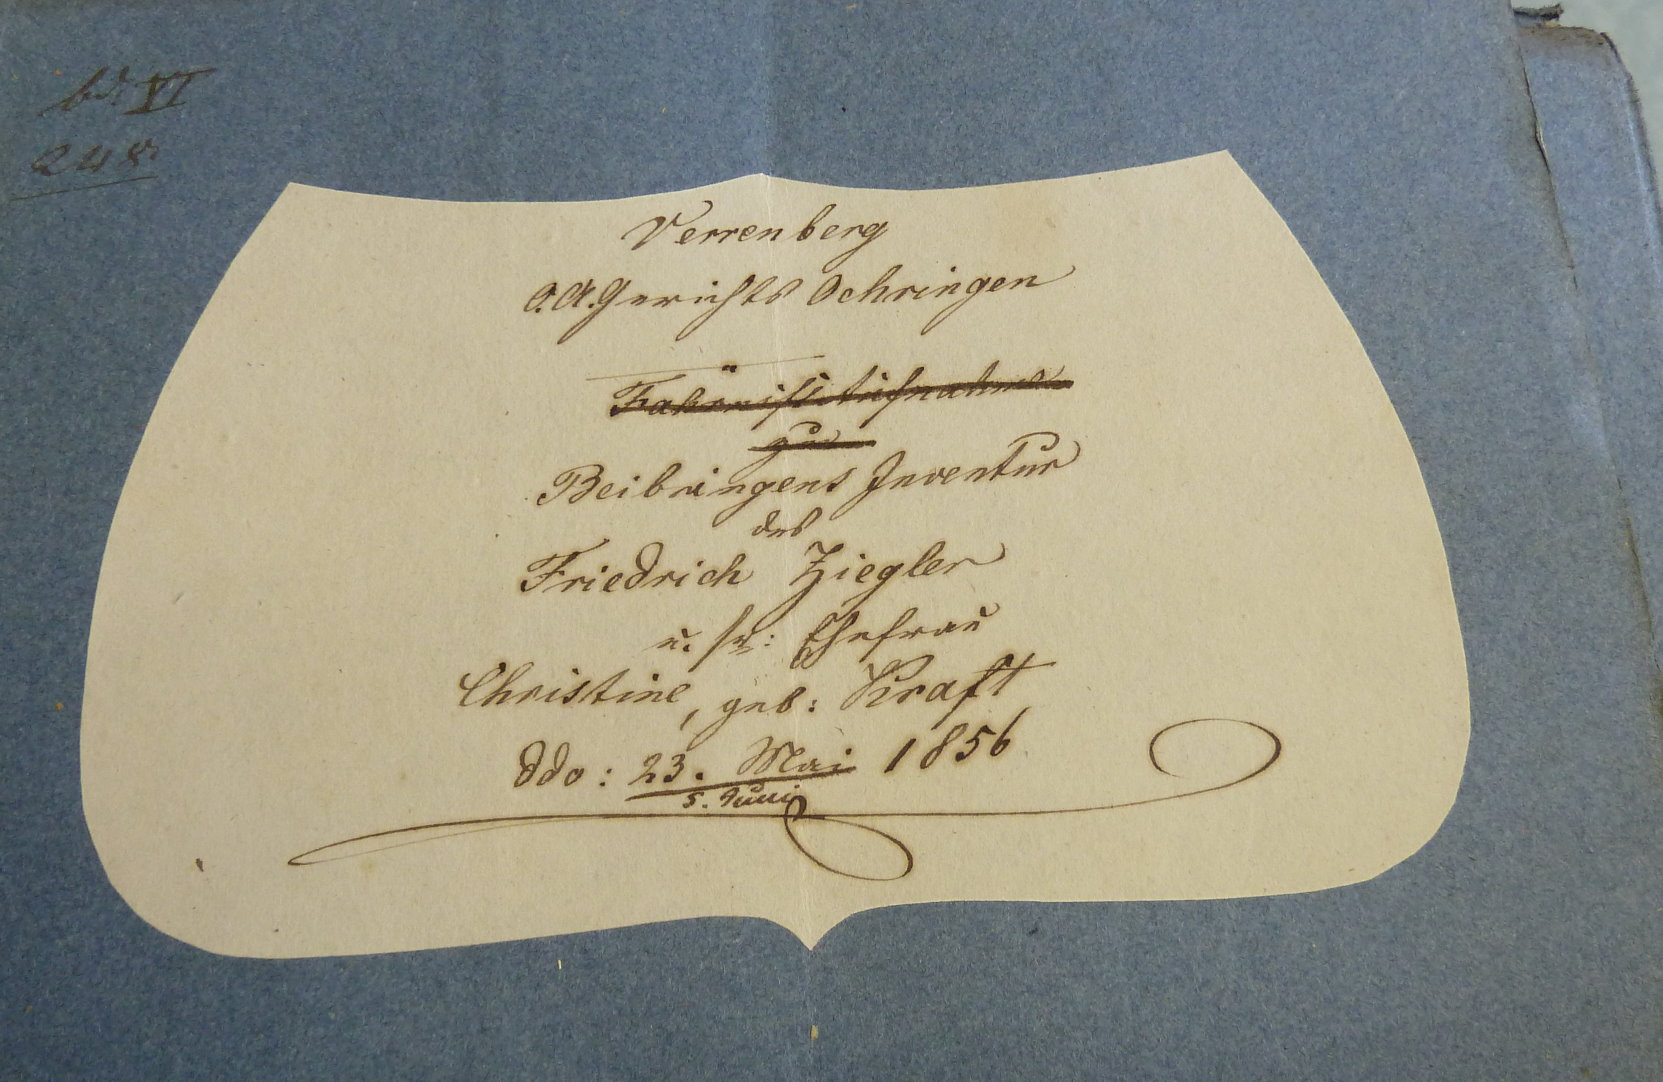 bd. VI
248.
Verrenberg
O.A.Gerichts Oehringen
Fahrniß Aufnahme
zur
Beibringens Inventur
des
Friedrich Ziegler
u. sr: Ehefrau
Christine, geb: Kraft
ddo: 23. Mai 1856
5. Juni